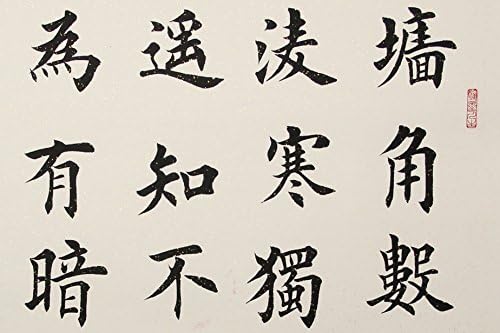 墻角數
淩寒獨
遥知不
為有暗